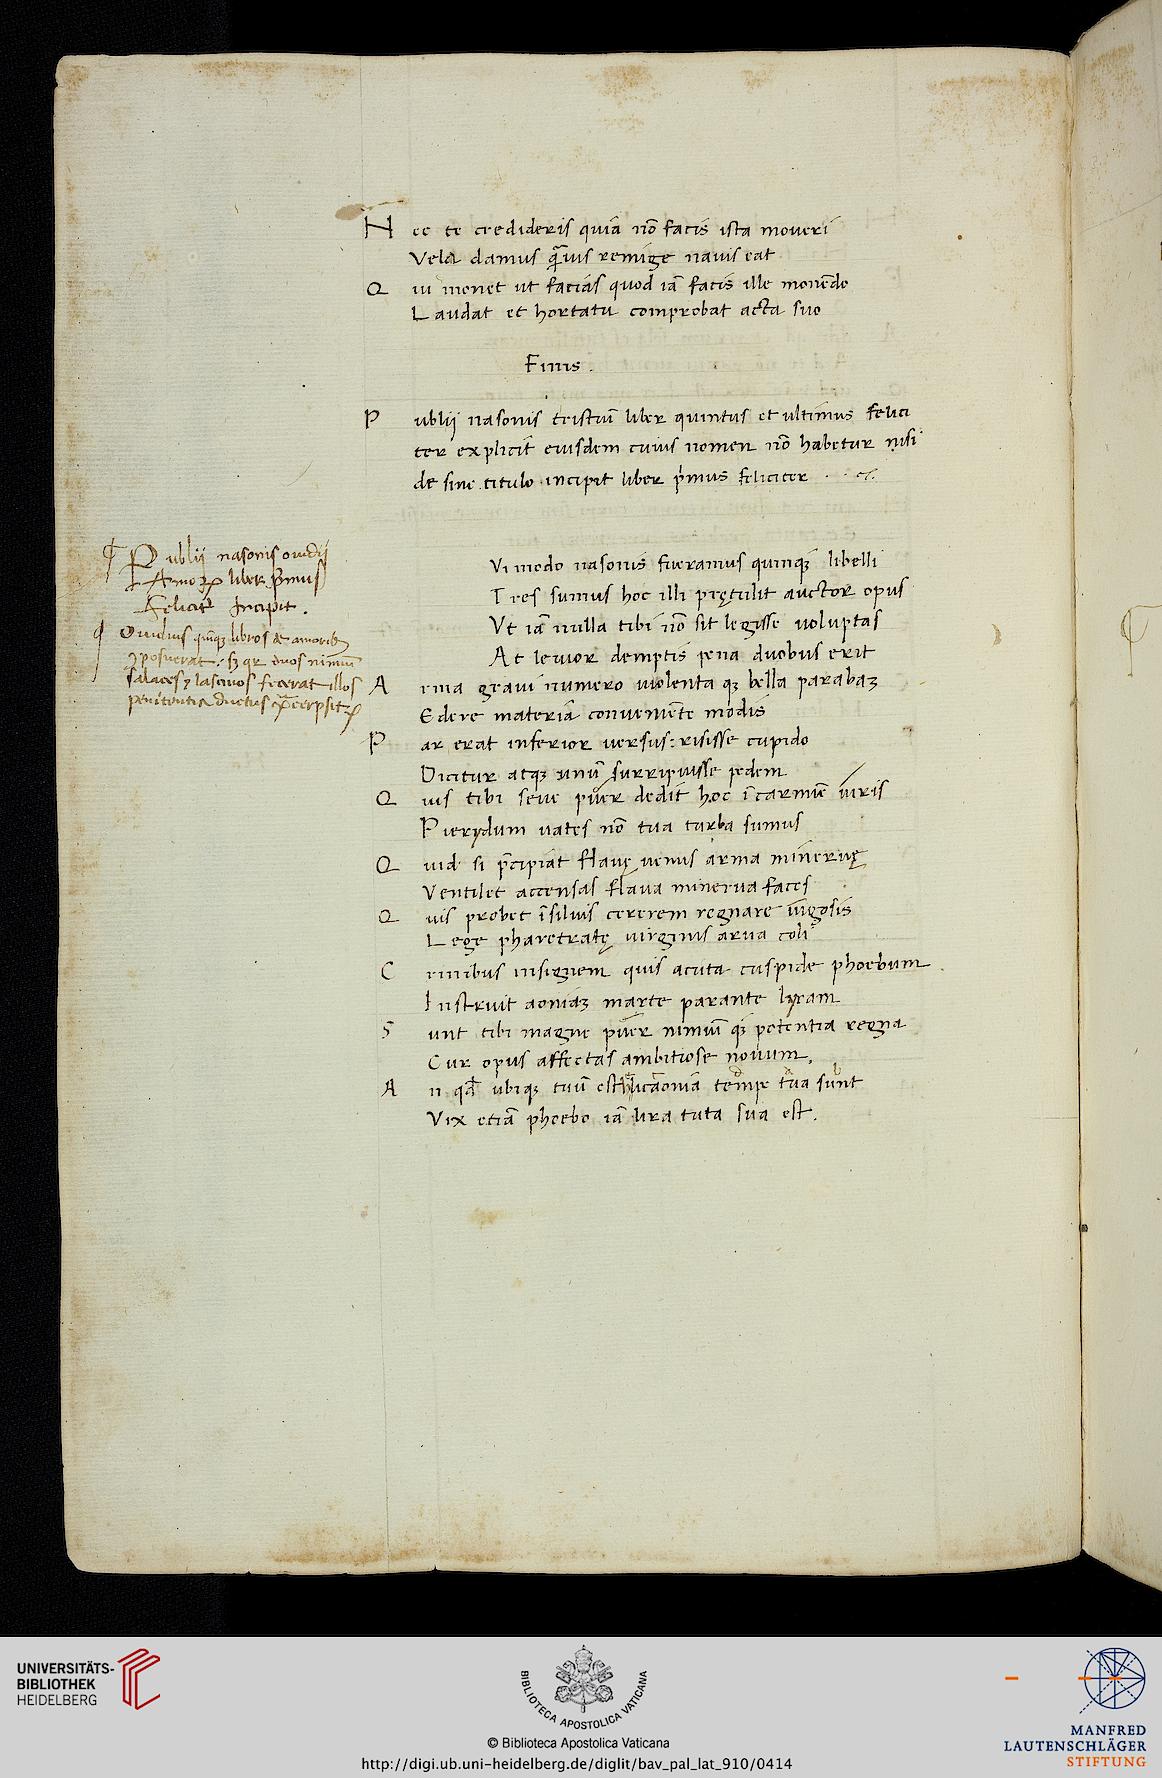 N ec te credideris quiā nō facis ista moveri
Vela damus q̄vis remige navis eat
Q ui monet ut facias quod iā facis ille monēdo
Laudat et hortatu comprobat acta suo
Finis .
P ublij nasonis tristiū liber quintus et ultimus felici
ter explicit eiusdem cuius nomen nō habetur nisi
de sine titulo incipit liber p̄mus feliciter
¶ Publij nasonis ovidij
Amoꝝ liber p̄mus
Felicit̄ Incipit .
¶ Ovidius qīqꝫ libros de amoribꝫ
ꝯposuerat . sꝫ qr duos nimiū
salaces ⁊ lascivos fecerat illos
penitentia ductus
Vi modo nasonis fueramus quinqꝫ libelli
Tres sumus hoc illi prętulit auctor opus
Vt iā nulla tibi nō sit legisse voluptas
At levior demptis pena duobus erit
A rma gravi numero violenta qꝫ bella parabaꝫ
Edere materiā conveniēte modis
P ar erat inferior versus: risisse cupido
Dicitur atqꝫ unū surripuisse pedem
Q uis tibi seve puer dedit hoc ī carmīe iuris
Pierydum vates nō tua turba sumus
Q uid si p̄cipiat flavę venus arma minervę
Ventilet accensas flava minerva faces
Q uis probet ī silvis cererem regnare iugosis
Lege pharetratę virginis arva coli
C rinibus insignem quis acuta cuspide phoebum
Instruit aoniaꝫ marte parante lyram
S unt tibi magne puer nimiū qꝫ potentia regna
Cur opus affectas ambitiose novum,
A n qd̄ ubiqꝫ tuū est elicaoniā tempe tua sunt
Vix etiā phoebo iā lira tuta sua est .
UNIVERSITÄTS-
BIBLIOTHEK
HEIDELBERG
BIBLIOTECA APOSTOLICA VATICANA
© Biblioteca Apostolica Vaticana
http://digi.ub.uni-heidelberg.de/diglit/bav_pal_lat_910/0414
MANFRED
LAUTENSCHLÄGER
STIFTUNG